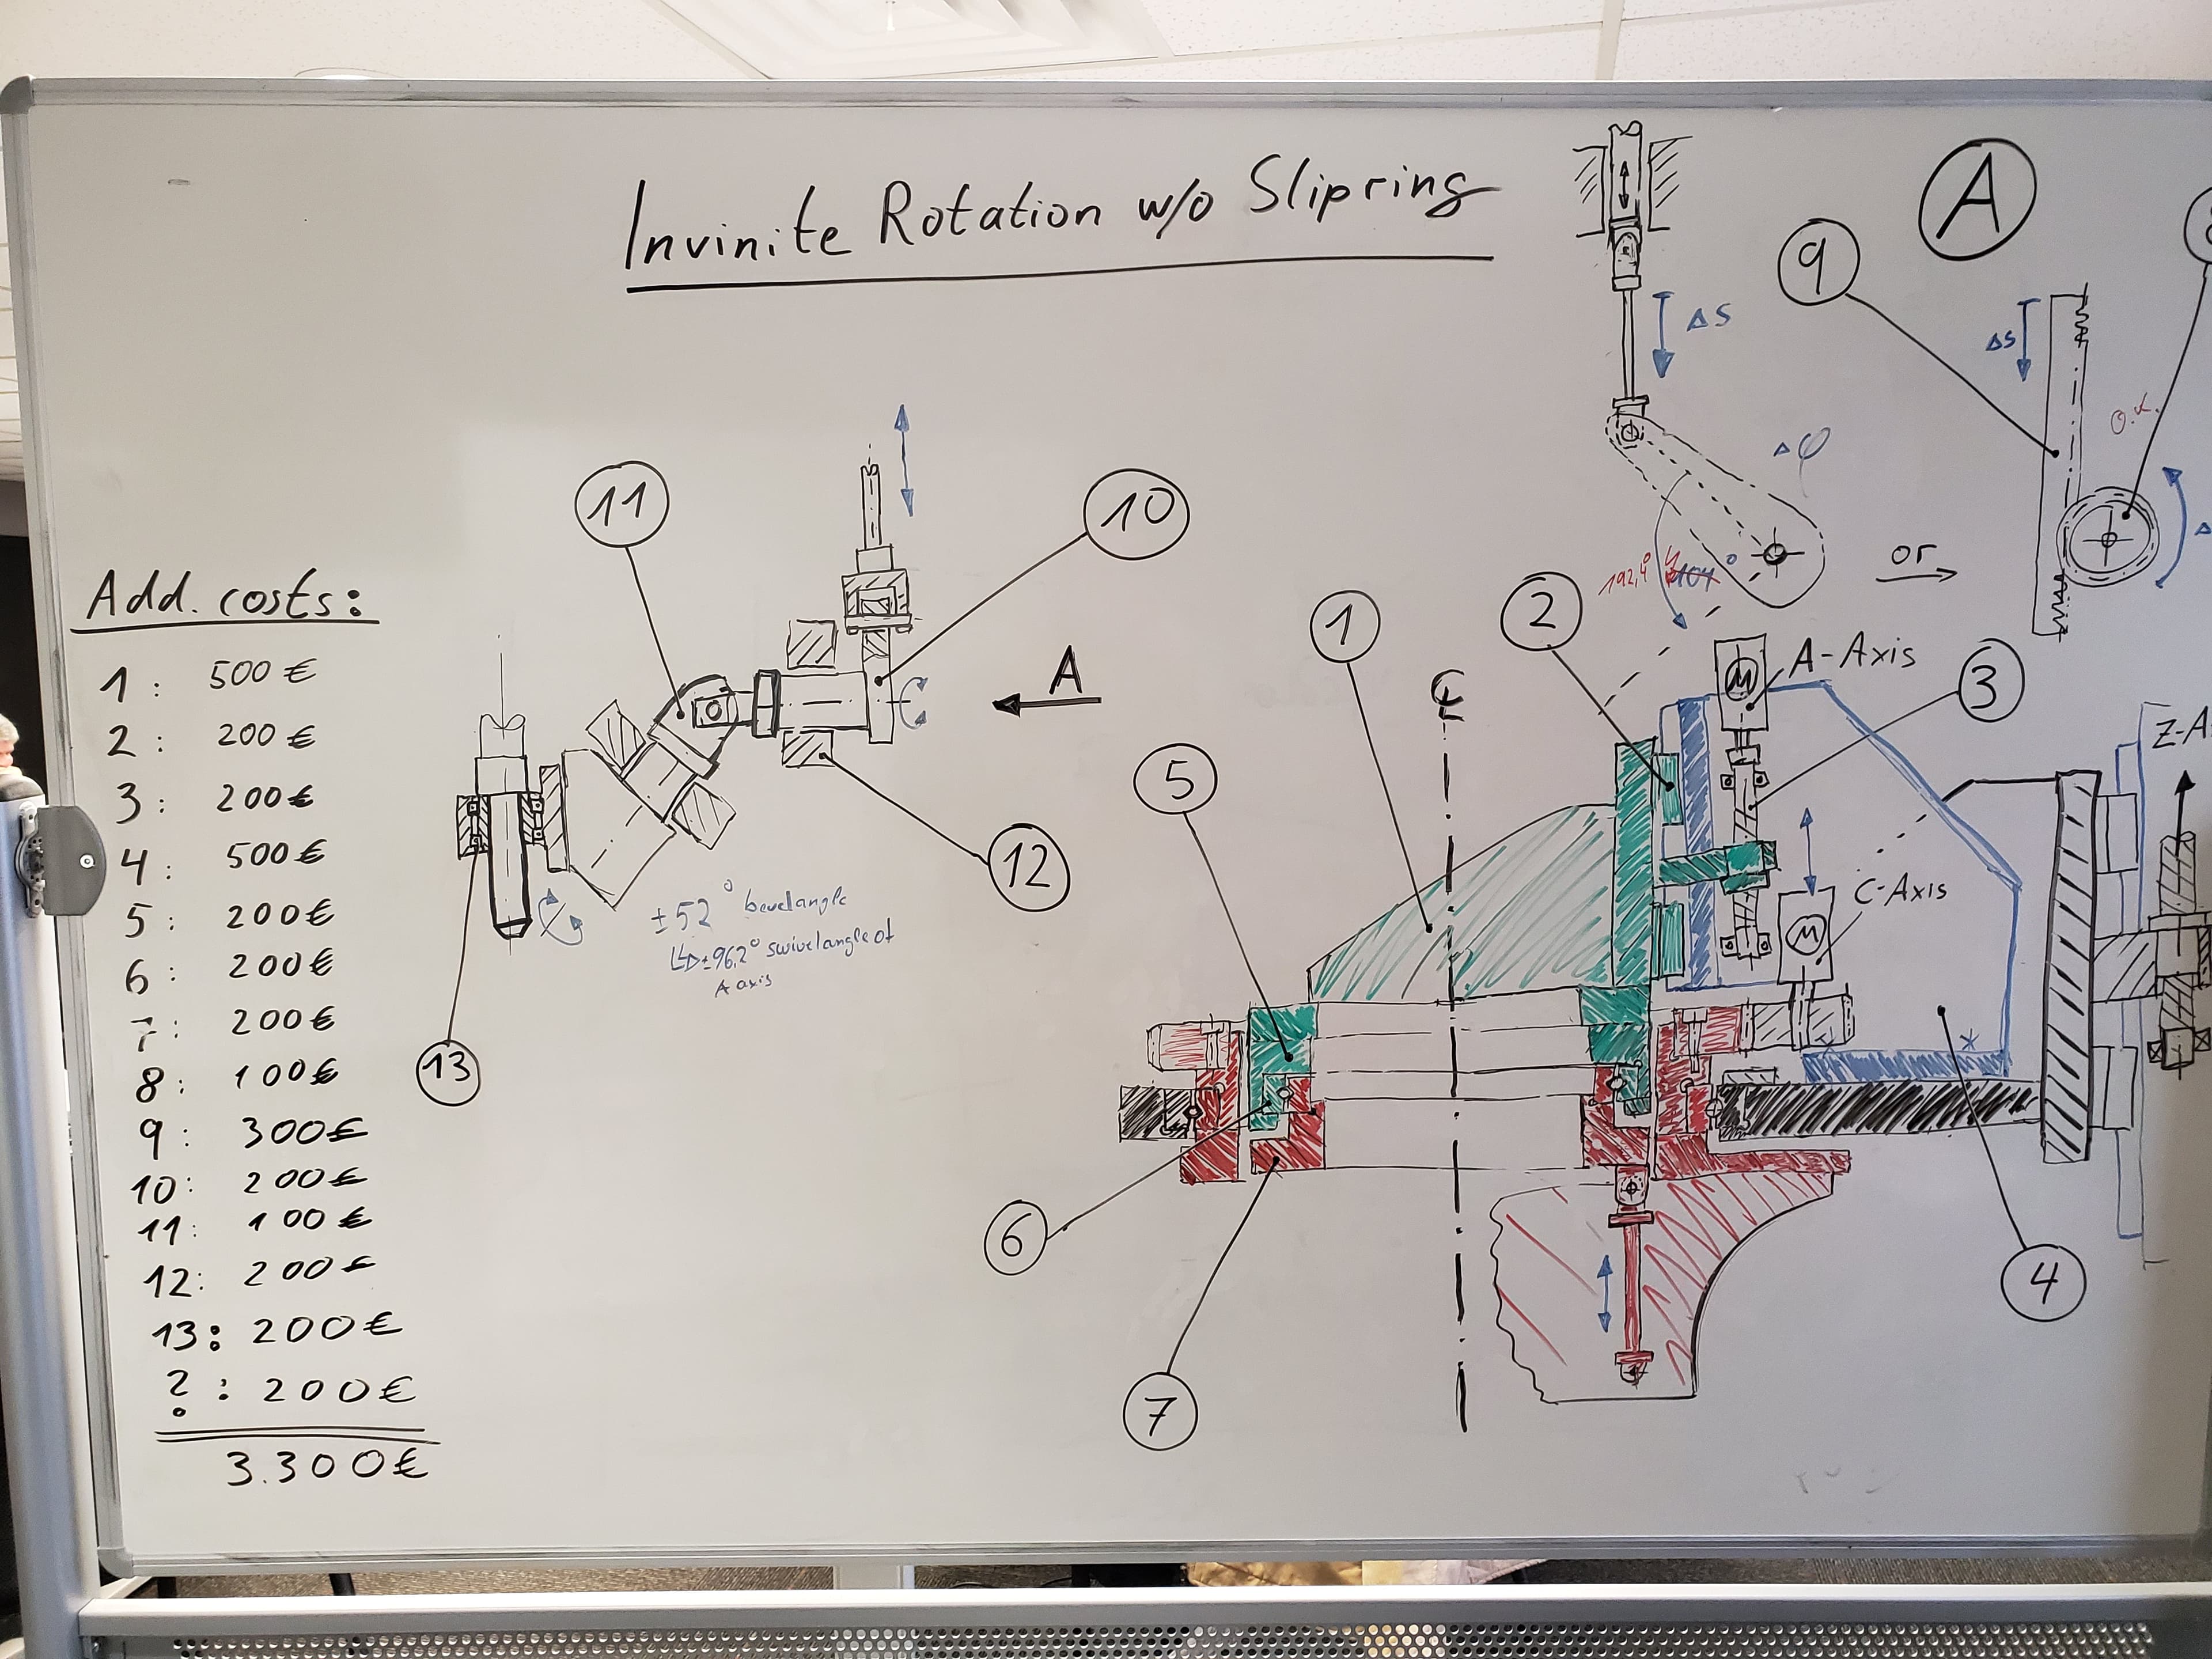 Invinite Rotation w/o Slipring
A
9
Δs
Δs
O.K.
Δφ
192,4°
or
11
10
A
12
13
±52° bevelangle
±96,2° swivelangle of
A axis
1
2
3
5
6
7
4
℄
M
A-Axis
M
C-Axis
*
Add. costs:
1: 500 €
2: 200 €
3: 200 €
4: 500 €
5: 200 €
6: 200 €
7: 200 €
8: 100 €
9: 300 €
10: 200 €
11: 100 €
12: 200 €
13: 200 €
?: 200 €
3.300 €